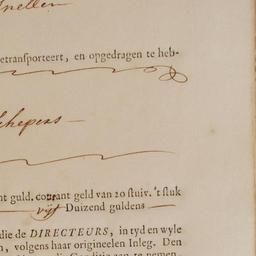 Snellen
etransporteert, en opgedragen te heb-
Schepers
nt guld. courant geld van 20 stuiv. 't stuk
vijf Duizend guldens
die de DIRECTEURS, in tyd en wyle
n, volgens haar origineelen Inleg. Den
Conditie aan te nemen